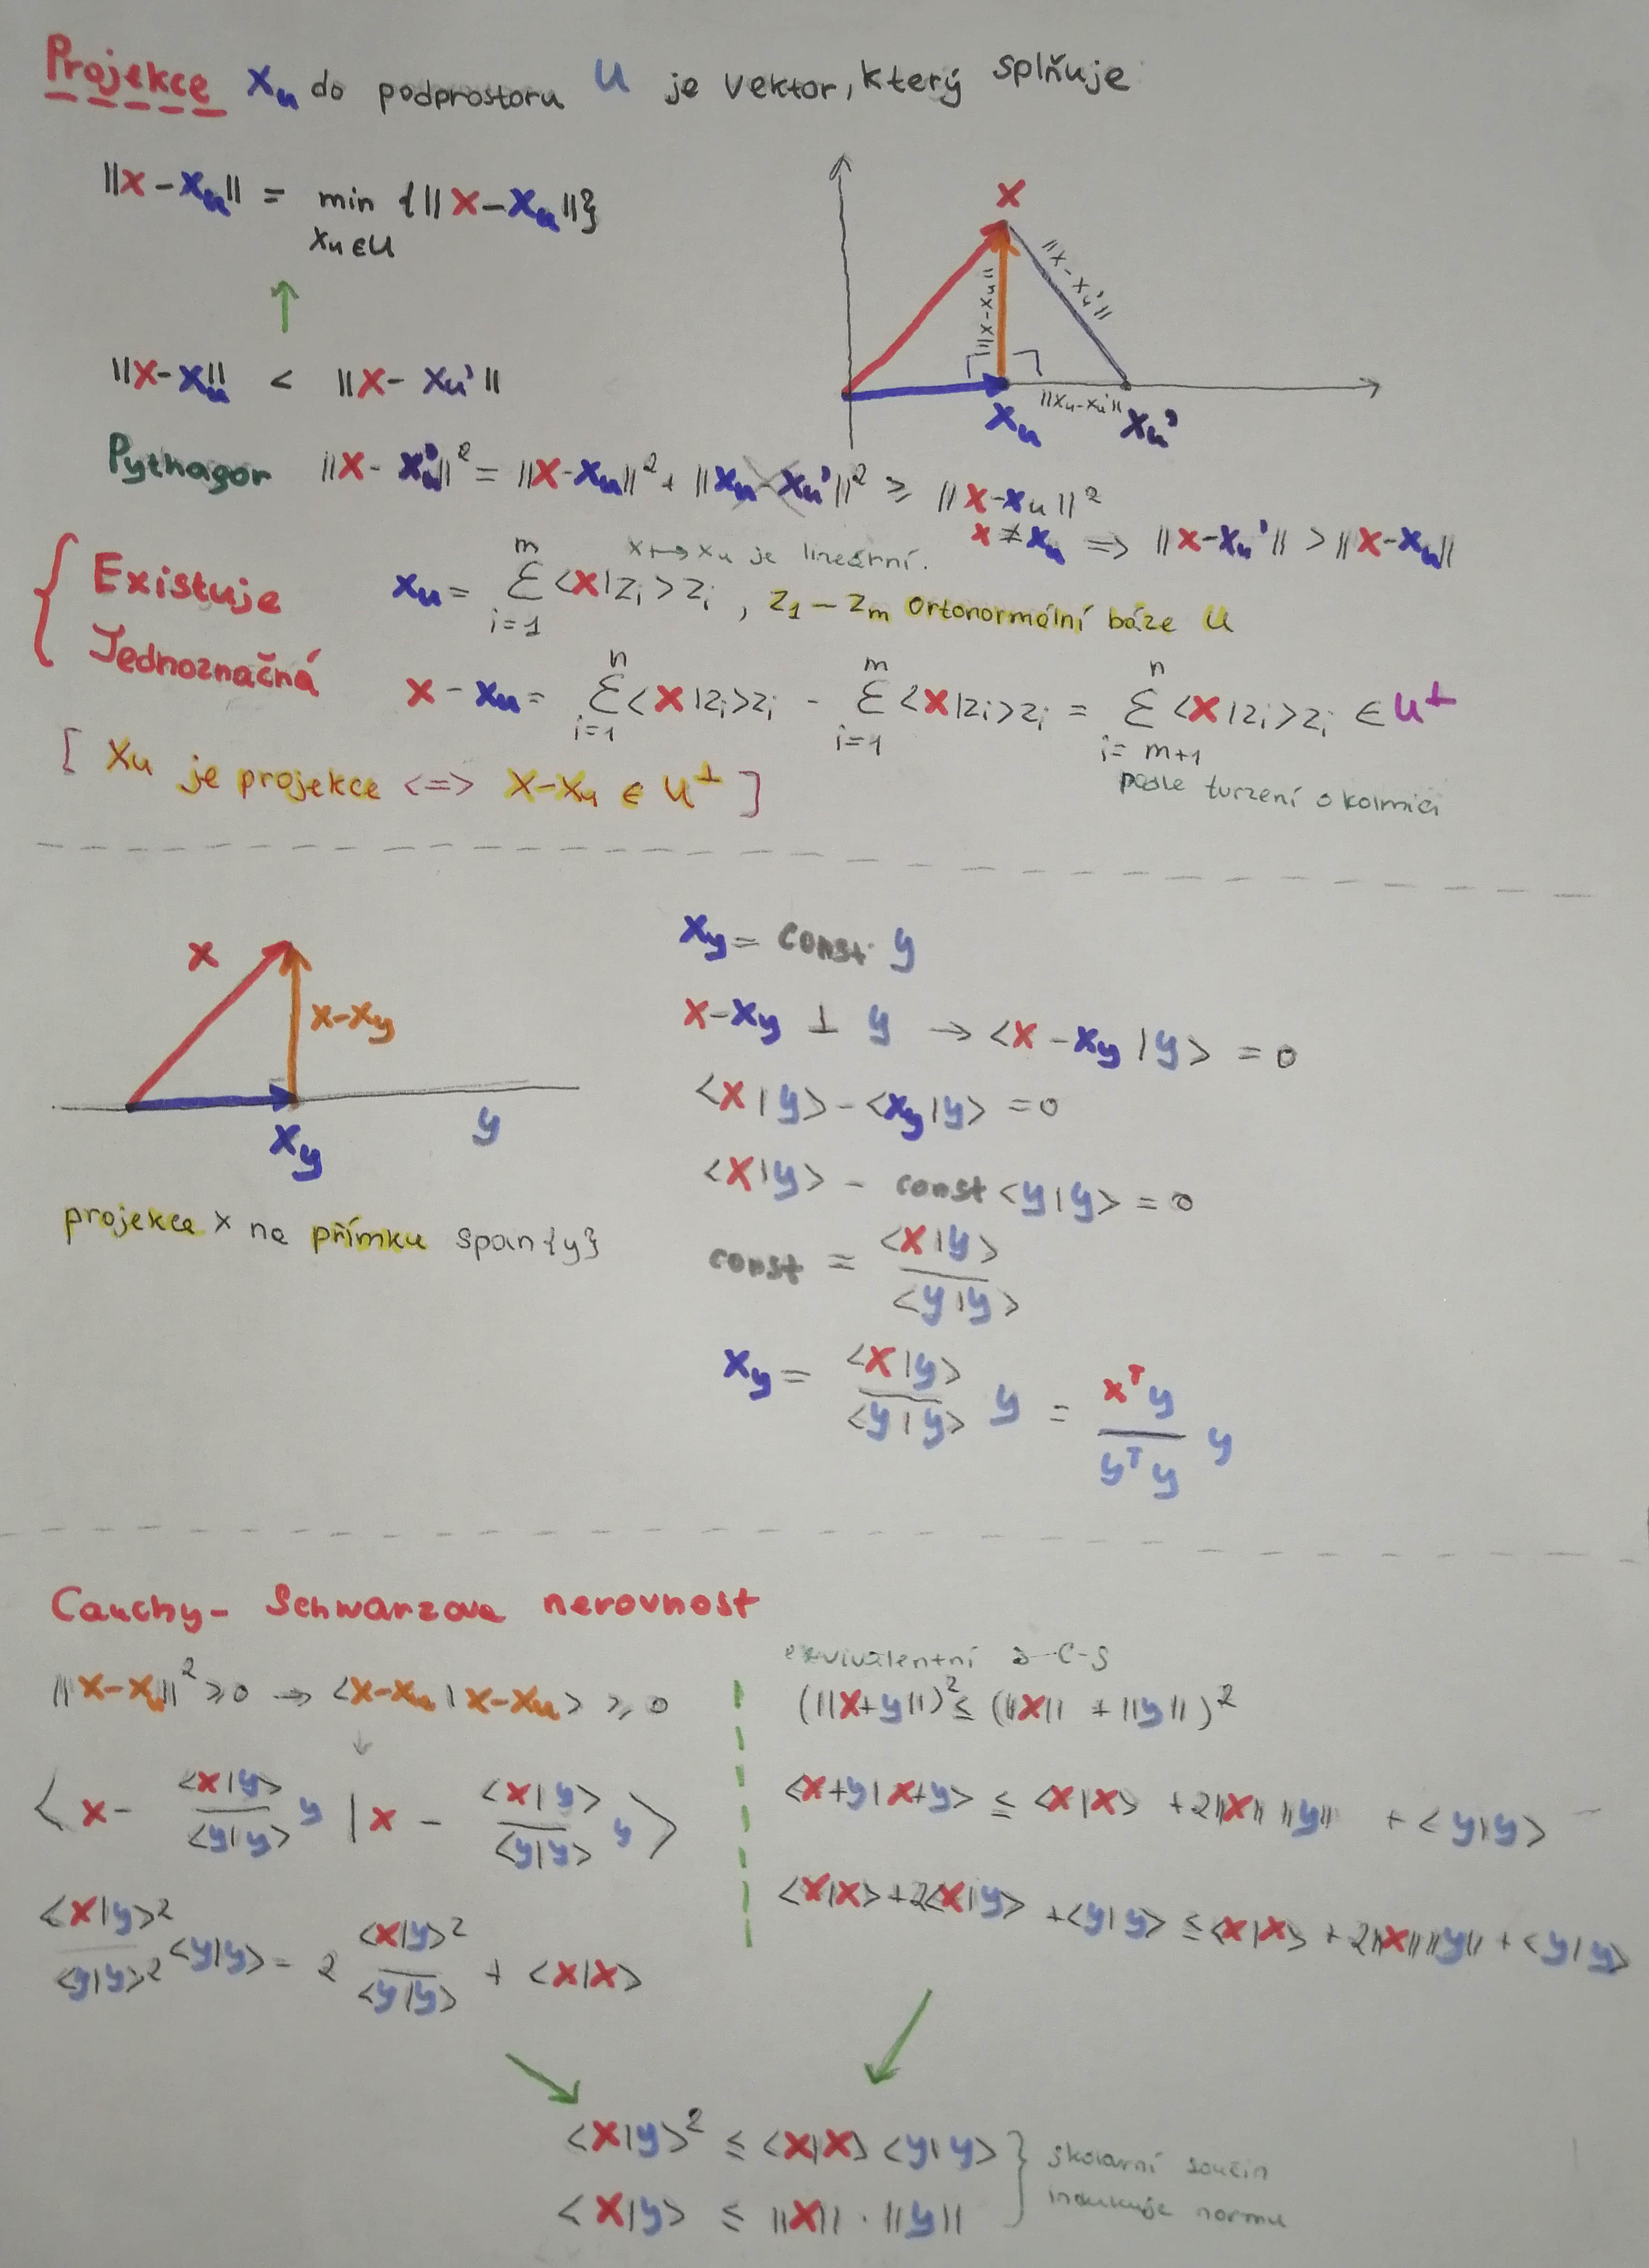 Projekce x_u do podprostoru U je vektor, který splňuje
||x-x_u|| = min {||x-x_u||}
x_u ∈ U
↑
||x-x_u|| < ||x-x_u'||
x
||x-x_u||
||x-x_u'||
||x_u-x_u'||
x_u
x_u'
Pythagor ||x-x_u'||² = ||x-x_u||² + ||x_u-x_u'||² ≥ ||x-x_u||²
x ≠ x_u => ||x-x_u'|| > ||x-x_u||
x ↦ x_u je lineární.
{ Existuje
Jednoznačná
x_u = Σ_{i=1}^{m} <x|z_i> z_i , z_1 – z_m ortonormální báze U
x - x_u = Σ_{i=1}^{n} <x|z_i> z_i - Σ_{i=1}^{m} <x|z_i> z_i = Σ_{i=m+1}^{n} <x|z_i> z_i ∈ U^⊥
podle tvrzení o kolmici
[ x_u je projekce <=> x-x_u ∈ U^⊥ ]
x
x-x_y
x_y
y
projekce x na přímku span{y}
x_y = const · y
x-x_y ⊥ y → <x-x_y|y> = 0
<x|y> - <x_y|y> = 0
<x|y> - const <y|y> = 0
const = <x|y> / <y|y>
x_y = <x|y> / <y|y> y = x^T y / y^T y y
Cauchy-Schwarzova nerovnost
||x-x_u||² ≥ 0 → <x-x_u|x-x_u> ≥ 0
↓
< x - <x|y> / <y|y> y | x - <x|y> / <y|y> y >
<x|y>² / <y|y>² <y|y> - 2 <x|y>² / <y|y> + <x|x>
ekvivalentní s C-S
(||x+y||)² ≤ (||x|| + ||y||)²
<x+y|x+y> ≤ <x|x> + 2||x|| ||y|| + <y|y>
<x|x> + 2<x|y> + <y|y> ≤ <x|x> + 2||x||||y|| + <y|y>
<x|y>² ≤ <x|x> <y|y>
<x|y> ≤ ||x|| · ||y||
} skalární součin
indukuje normu